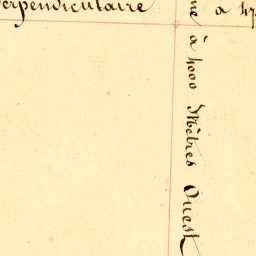 erpendiculaire
à 47
ne à 4000 Mètres Ouest